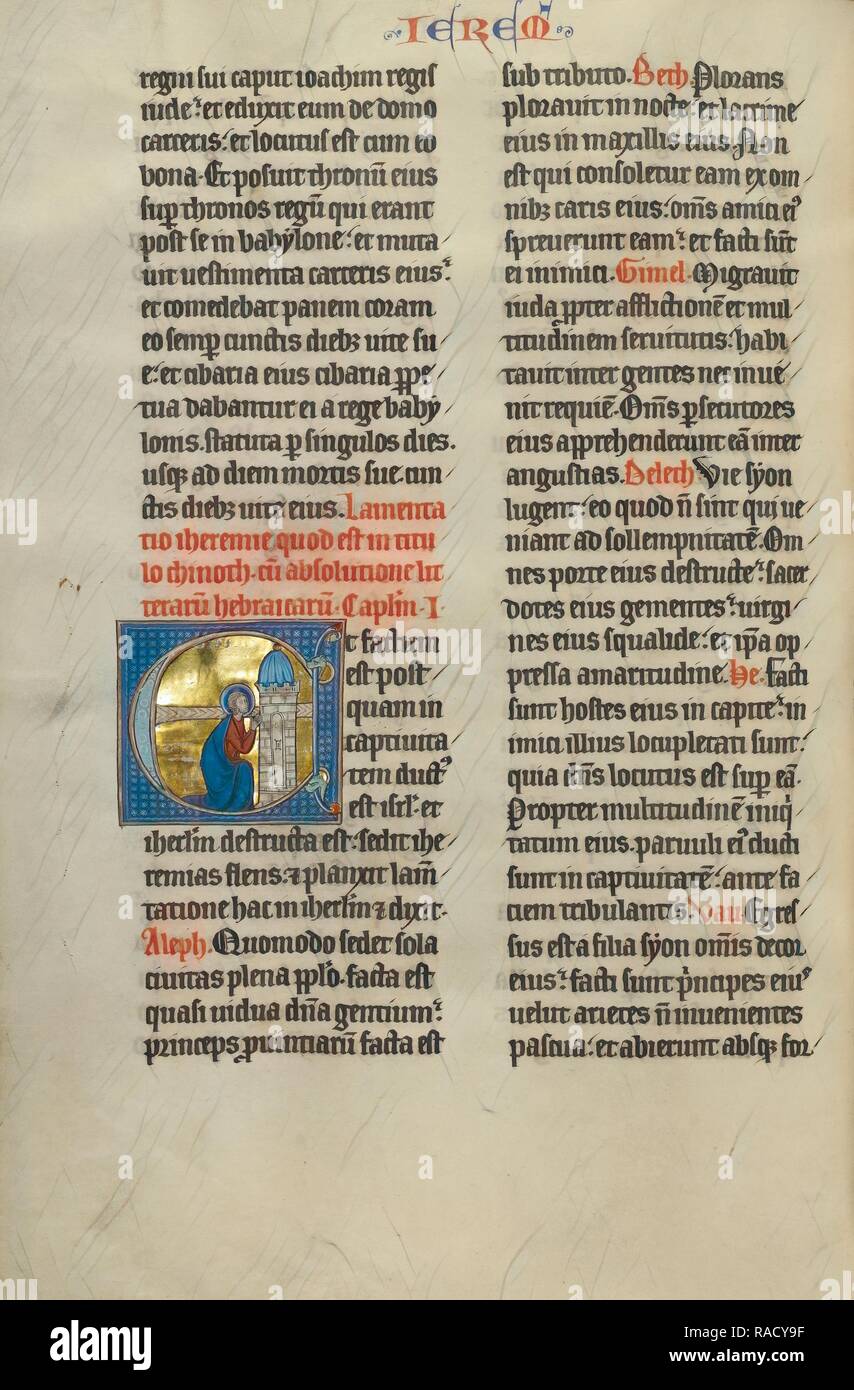 IEREM
regni sui caput ioachim regis
iude? et eduxit eum de domo
carceris. et locutus est cum eo
bona. Et posuit thronū eius
sup thronos regū qui erant
post se in babylone. et muta
uit uestimenta carceris eius.
et comedebat panem coram
eo semp cunctis diebȝ uite su
e. et cibaria eius cibaria ppe
tua dabantur ei a rege baby
lonis. statuta p singulos dies.
usqȝ ad diem mortis sue. cun
ctis diebȝ uite eius. Lamenta
tio iheremie quod est in titu
lo chinoth. cū absolutione lit
terarū hebraicarū. Caplm. I.
Et factum
est post
quam in
captiuita
tem duct᾽
est isrl. et
iherlm destructa est. sedit ihe
remias flens. ⁊ planxit lam̄
tatione hac in iherlm ⁊ dixit.
Aleph. Quomodo sedet sola
ciuitas plena pplo. facta est
quasi uidua dn̄a gentium.
princeps prouintiarū facta est
sub tributo. Beth. Plorans
plorauit in nocte. et lacrime
eius in maxillis eius. Non
est qui consoletur eam ex om
nibȝ caris eius. om̄s amici ei᾽
spreuerunt eam. et facti sūt
ei inimici. Gimel. Migrauit
iuda ppter afflictionē et mul
titudinem seruitutis. habi
tauit inter gentes nec inue
nit requiē. Om̄s psecutores
eius apprehenderunt eā inter
angustias. Deleth. Vie syon
lugent. eo quod n̄ sint qui ue
niant ad sollempnitatē. Om
nes porte eius destructe. sacer
dotes eius gementes. uirgi
nes eius squalide. et ip̄a op
pressa amaritudine. He. Facti
sunt hostes eius in capite. in
imici illius locupletati sunt.
quia dn̄s locutus est sup eā.
Propter multitudinē iniqi
tatum eius. paruuli ei᾽ ducti
sunt in captiuitatē. ante fa
ciem tribulantis. Vau. Egres
sus est a filia syon om̄is decor
eius. facti sunt principes eiu᾽
uelut arietes n̄ inuenientes
pascua. et abierunt absqȝ for
alamy
Image ID: RACY9F
www.alamy.com